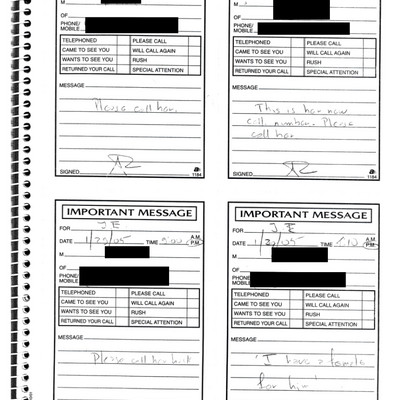 M
OF
PHONE/
MOBILE
TELEPHONED PLEASE CALL
CAME TO SEE YOU WILL CALL AGAIN
WANTS TO SEE YOU RUSH
RETURNED YOUR CALL SPECIAL ATTENTION
MESSAGE
Please call her.
SIGNED
1184
M
OF
PHONE/
MOBILE
TELEPHONED PLEASE CALL
CAME TO SEE YOU WILL CALL AGAIN
WANTS TO SEE YOU RUSH
RETURNED YOUR CALL SPECIAL ATTENTION
MESSAGE
This is her new
cell number. Please
call her
SIGNED
1184
IMPORTANT MESSAGE
FOR JE
DATE /05 TIME A.M.
P.M.
M
OF
PHONE/
MOBILE
TELEPHONED PLEASE CALL
CAME TO SEE YOU WILL CALL AGAIN
WANTS TO SEE YOU RUSH
RETURNED YOUR CALL SPECIAL ATTENTION
MESSAGE
Please call her back
IMPORTANT MESSAGE
FOR JE
DATE /05 TIME A.M.
P.M.
M
OF
PHONE/
MOBILE
TELEPHONED PLEASE CALL
CAME TO SEE YOU WILL CALL AGAIN
WANTS TO SEE YOU RUSH
RETURNED YOUR CALL SPECIAL ATTENTION
MESSAGE
"I have a female
for him"